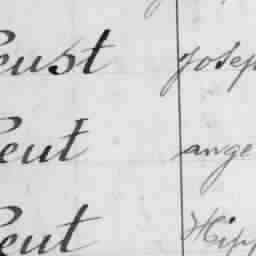 eust Josep
eut ange
eut Hipp